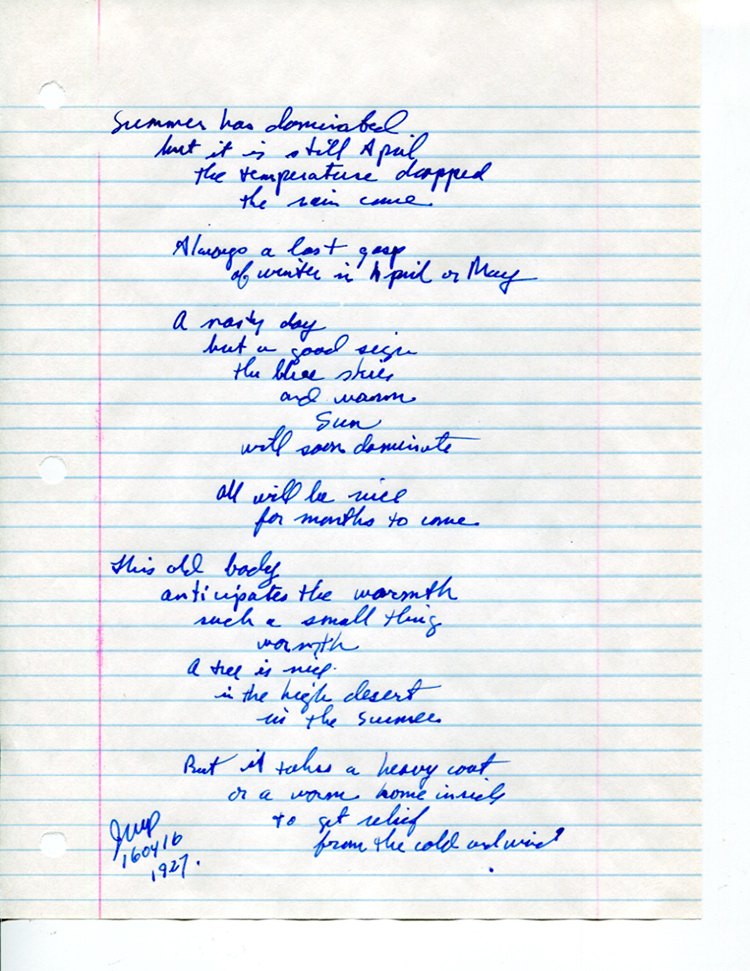 Summer has dominated
but it is still April
the temperature dropped
the rain came.
Always a last gasp
of winter in April or May
A nasty day
but a good sign
the blue skies
and warm
Sun
will soon dominate
all will be nice
for months to come.
this old body
anticipates the warmth
such a small thing
warmth
A tree is nice.
in the high desert
in the summer
But it takes a heavy coat
or a warm home inside
to get relief
from the cold and wind
160416
1927.